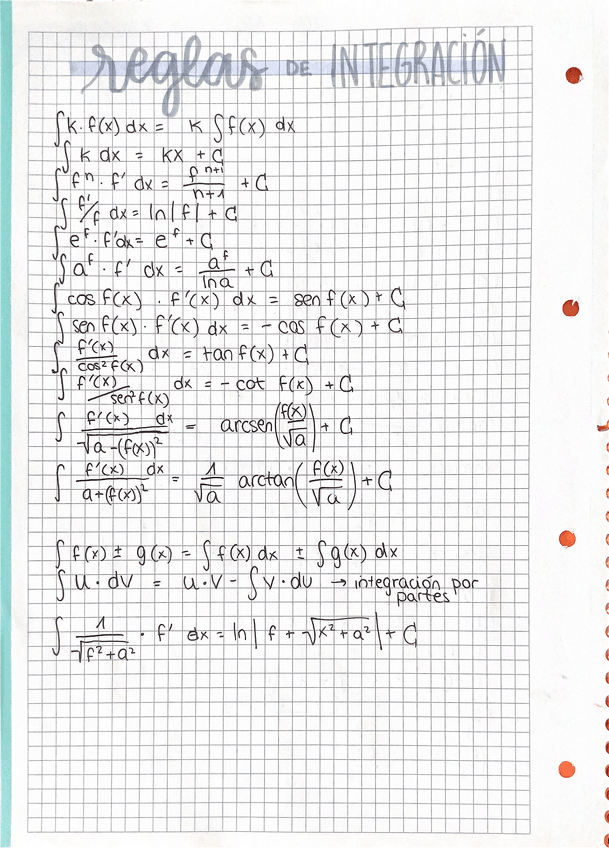 reglas DE INTEGRACIÓN
∫ k · f(x) dx = k ∫ f(x) dx
∫ k dx = kx + C
∫ fⁿ · f' dx = fⁿ⁺¹/(n+1) + C
∫ f'/f dx = ln|f| + C
∫ eᶠ · f' dx = eᶠ + C
∫ aᶠ · f' dx = aᶠ/ln a + C
∫ cos f(x) · f'(x) dx = sen f(x) + C
∫ sen f(x) · f'(x) dx = - cos f(x) + C
∫ f'(x)/cos² f(x) dx = tan f(x) + C
∫ f'(x)/sen² f(x) dx = - cot f(x) + C
∫ f'(x) dx/√(a-(f(x))²) = arcsen(f(x)/√a) + C
∫ f'(x) dx/(a+(f(x))²) = 1/√a arctan(f(x)/√a) + C
∫ f(x) ± g(x) = ∫ f(x) dx ± ∫ g(x) dx
∫ u · dv = u · v - ∫ v · du → integración por
partes
∫ 1/√(f²+a²) · f' dx = ln|f + √(x²+a²)| + C